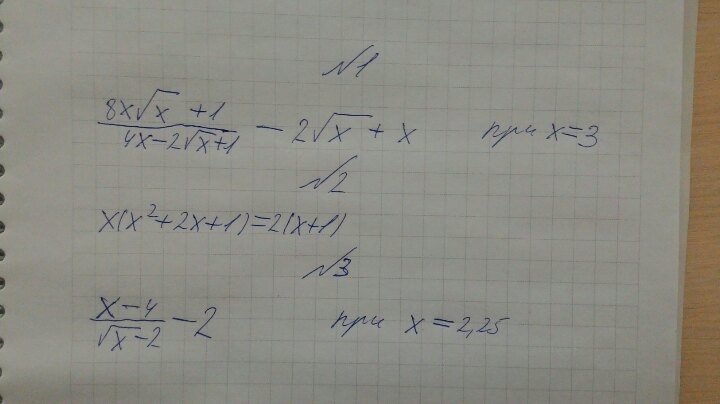 №1
(8x√x + 1)/(4x - 2√x + 1) - 2√x + x при x = 3
№2
x(x² + 2x + 1) = 2(x + 1)
№3
(x - 4)/(√x - 2) - 2 при x = 2,25